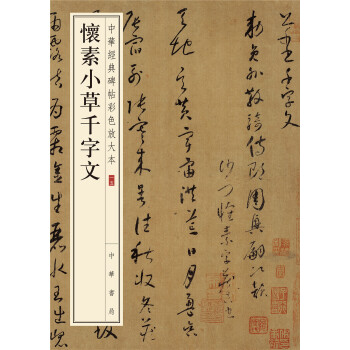 千字文
敕員外散騎侍郎周興嗣次韻
沙門懷素字藏真書
天地玄黃宇宙洪荒日月盈昃
辰宿列張寒來暑往秋收冬藏
中華經典碑帖彩色放大本
懷素小草千字文
中華書局
金生麗水玉出